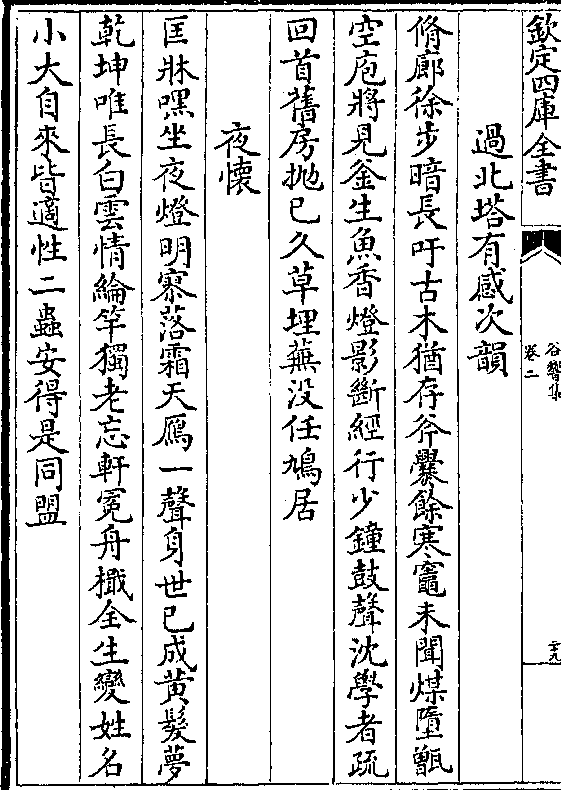 欽定四庫全書
谷響集
卷二
二十九
過北塔有感次韻
脩廊徐步暗長吁古木猶存斧爨餘寒竈未聞煤墮甑
空庖將見釜生魚香燈影斷經行少鐘鼓聲沈學者疏
回首舊房抛已久草埋蕪没任鳩居
夜懷
匡牀嘿坐夜燈明寥落霜天鴈一聲身世已成黄髮夢
乾坤唯長白雲情綸竿獨老忘軒冕舟檝全生變姓名
小大自來皆適性二蟲安得是同盟